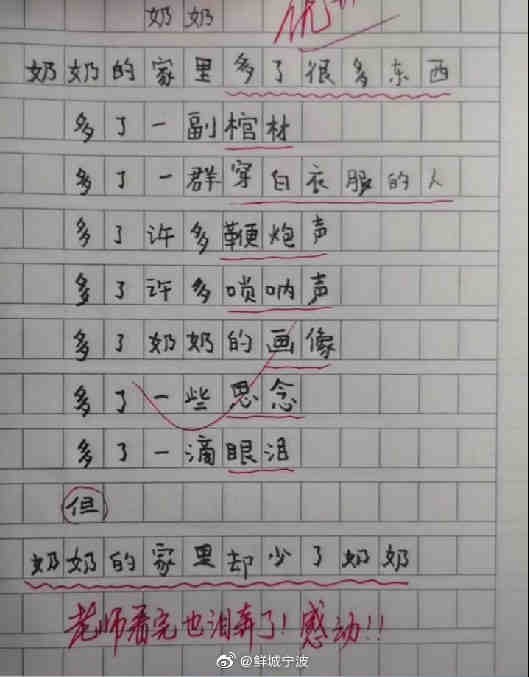 奶奶
优
奶奶的家里多了很多东西
多了一副棺材
多了一群穿白衣服的人
多了许多鞭炮声
多了许多唢呐声
多了奶奶的画像
多了一些思念
多了一滴眼泪
但
奶奶的家里却少了奶奶
老师看完也泪奔了！感动！！
@鲜城宁波